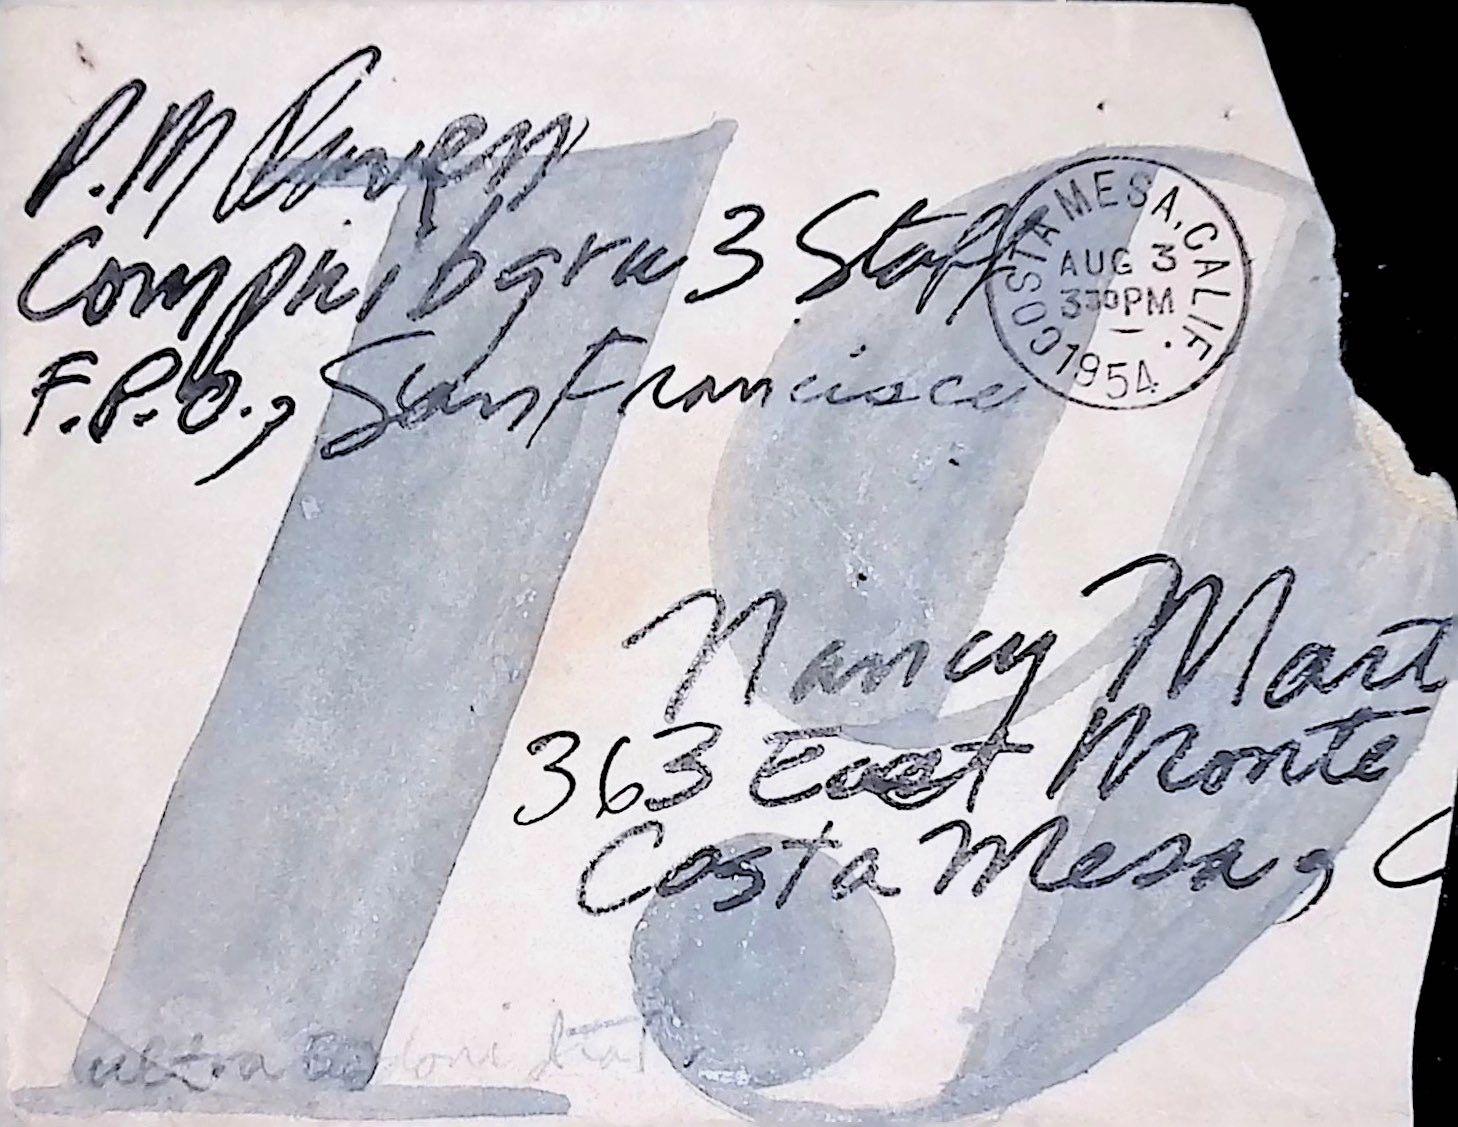 P. M
Comphibgru 3 Staff
F.P.O., San Francisco
COSTA MESA, CALIF.
AUG 3
3 30 PM
1954
19
Nancy Mart
363 East Monte
Costa Mesa, C
ultra Bodoni Ital.